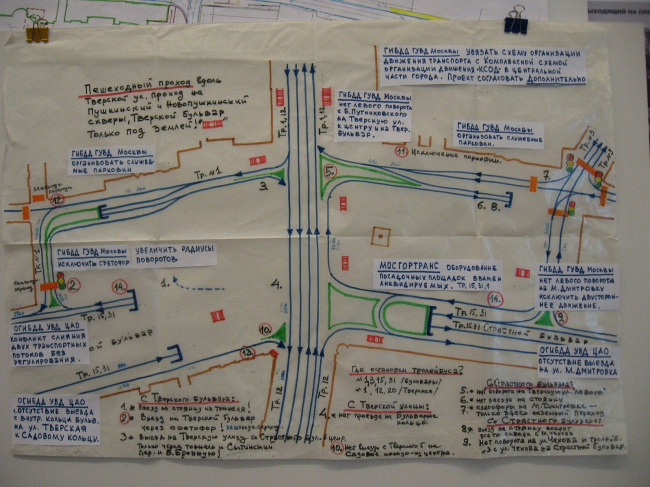 ГИБДД ГУВД Москвы увязать схему организации
движения транспорта с комплексной схемой
организации движения «КСОД» в центральной
части города. Проект согласовать дополнительно
Пешеходный проход вдоль
Тверской ул. проход на
Пушкинский и Новопушкинский
скверы, Тверской бульвар
Только под землей!
ГИБДД ГУВД Москвы
нет левого поворота
с Б. Путинковского
на Тверскую ул.
к центру и на Твер.
бульвар.
ГИБДД ГУВД Москвы
организовать служеб-
ные парковки
ГИБДД ГУВД Москвы
организовать служебные
парковки.
Тр. 1, 12
Тр. 1, 12
11. Исключение парковки.
Тр. №1
3.
5.
6. 8.
7.
12.
Тр. №1
ГИБДД ГУВД Москвы
исключить светофор
увеличить радиусы
поворотов
1.
2.
14.
Тр. 15, 31
4.
МОСГОРТРАНС оборудование
посадочных площадок взамен
ликвидируемых. Тр. 15, 31
ГИБДД ГУВД Москвы
нет левого поворота
на М. Дмитровку
исключить двусторон-
нее движение.
14.
Тр. 15, 31
Тр. 15, 31 Страстной бульвар
9.
ОГИБДД УВД ЦАО
конфликт слияния
двух транспортных
потоков без
регулирования.
бульвар
Тр. 15, 31
10.
13.
Тр. 12
ОГИБДД УВД ЦАО
отсутствие выезда
на ул. М. Дмитровка
ОГИБДД УВД ЦАО
отсутствие выезда
с внутр. кольца бульв.
на ул. Тверская
к Садовому кольцу.
С Тверского бульвара:
1.
2. въезд на Тверской бульвар
через светофор!
3. выезд на Тверскую улицу
только через тоннель и Сытинский
пер. и Б. Бронную!
Где остановки тролейбуса?
15, 31 /бульвары/
1, 12, 20 /Тверская/
С Тверской улицы:
4. нет проезда на бульварное
кольцо.
10. Нет выезда с Тверской
Садовое кольцо из центра.
С Страстного бульвара:
5. нет поворота на Тверскую ул. "левого"
7. светофоры на М. Дмитровке
только
С Страстного бульвара:
8. выезд на
9. Нет поворота на ул. Чехова
с ул. Чехова на Страстной бульвар.